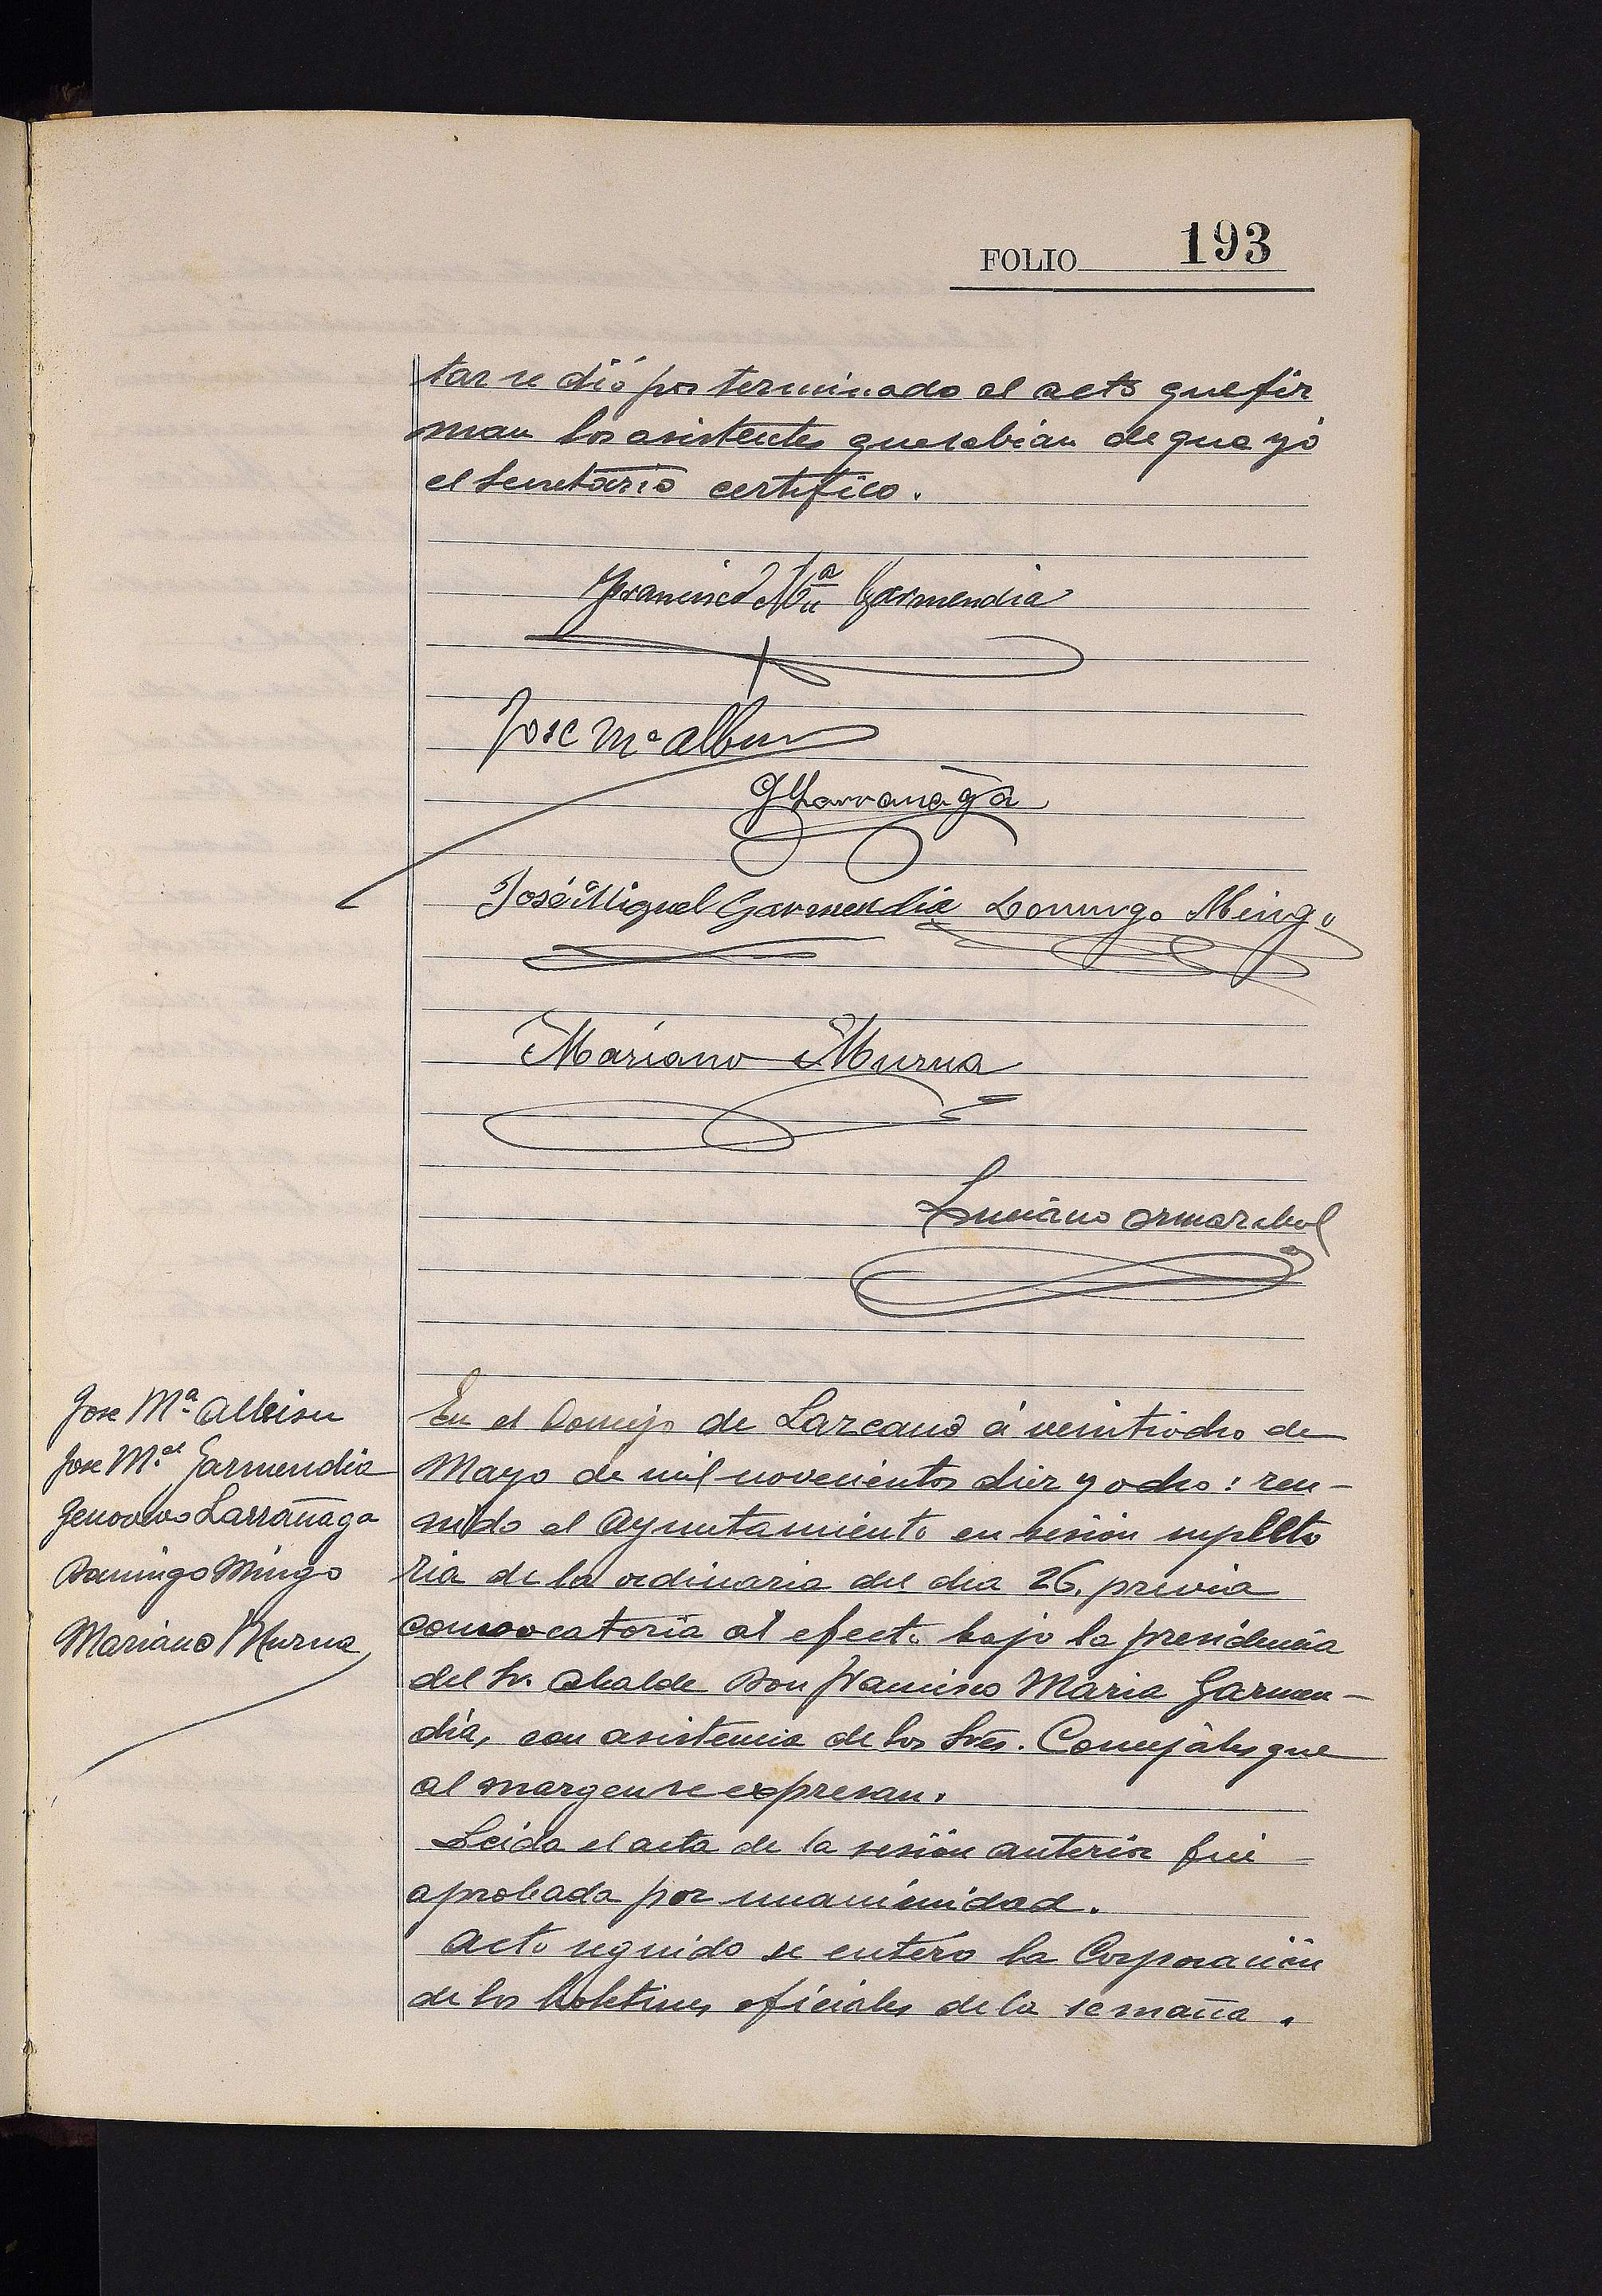 FOLIO 193
tar se dió por terminado el acto que fir
man los asistentes que sabian de que yó
el Secretario certifico.
Francisco Ma Garmendia
Jose Mª Albisu
G Larrañaga
José Miguel Garmendia Domingo Mingo
Mariano Murua
Luciano Ormazabal
Jose Mª Albisu
Jose M.el Garmendia
Genovevo Larrañaga
Domingo Mingo
Mariano Murua
En el Concejo de Lazcano á veintiocho de
Mayo de mil novecientos diez y ocho: reu-
nido el Ayuntamiento en sesion supleto
ria de la ordinaria del dia 26, previa
convocatoria al efecto bajo la presidencia
del Sr. Alcalde Don Francisco Maria Garmen-
dia, con asistencia de los Sres. Concejales que
al margen se expresan.
Leida el acta de la sesión anterior fué
aprobada por unanimidad.
Acto seguido se enteró la Corporación
de los boletines oficiales de la semana.